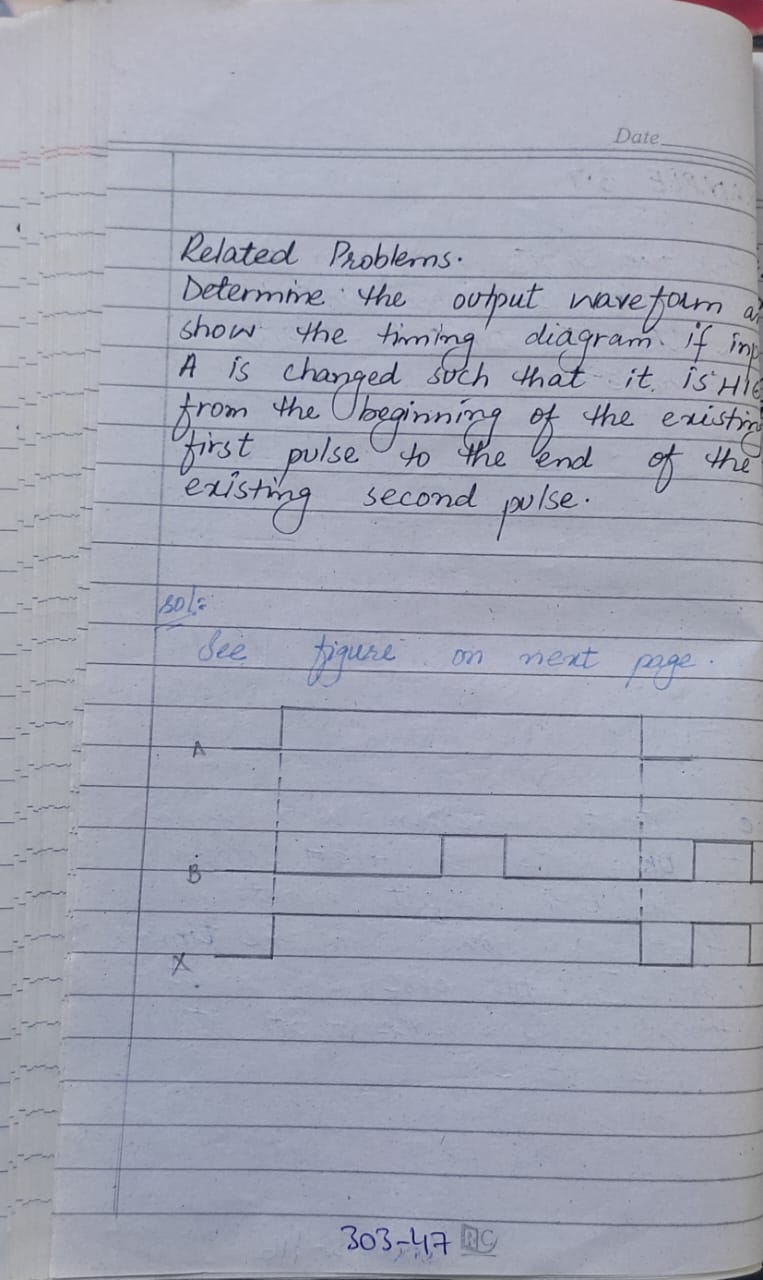 Date
Related Problems.
Determine the output waveform
show the timing diagram. if
A is changed such that it. is
from the beginning of the
first pulse to the end of the
existing second pulse.
sol:
See figure on next page.
A
B
X
303-47 RC